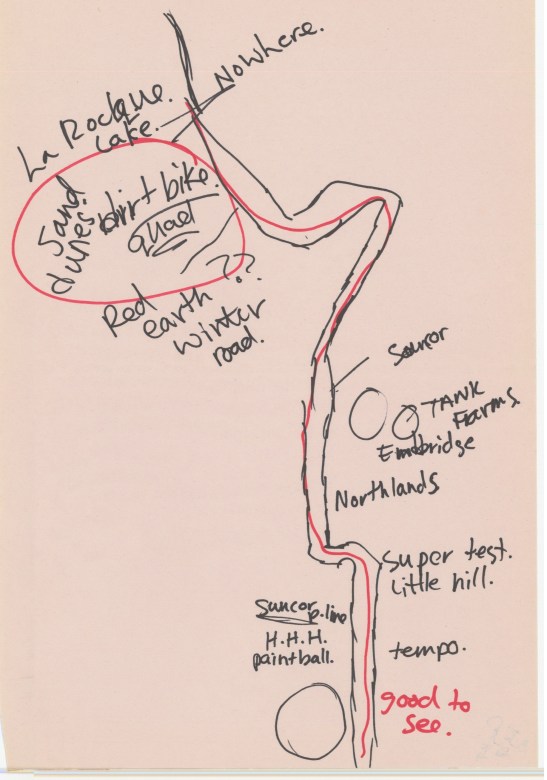 Nowhere.
La Rocque
Lake.
Sand
dunes
dirt bike.
quad
??
Red
earth
winter
road.
Suncor
TANK
Farms
Embridge
Northlands
Super test.
Little hill.
Suncor p.line
H.H.H.
paintball.
tempo.
good to
see.